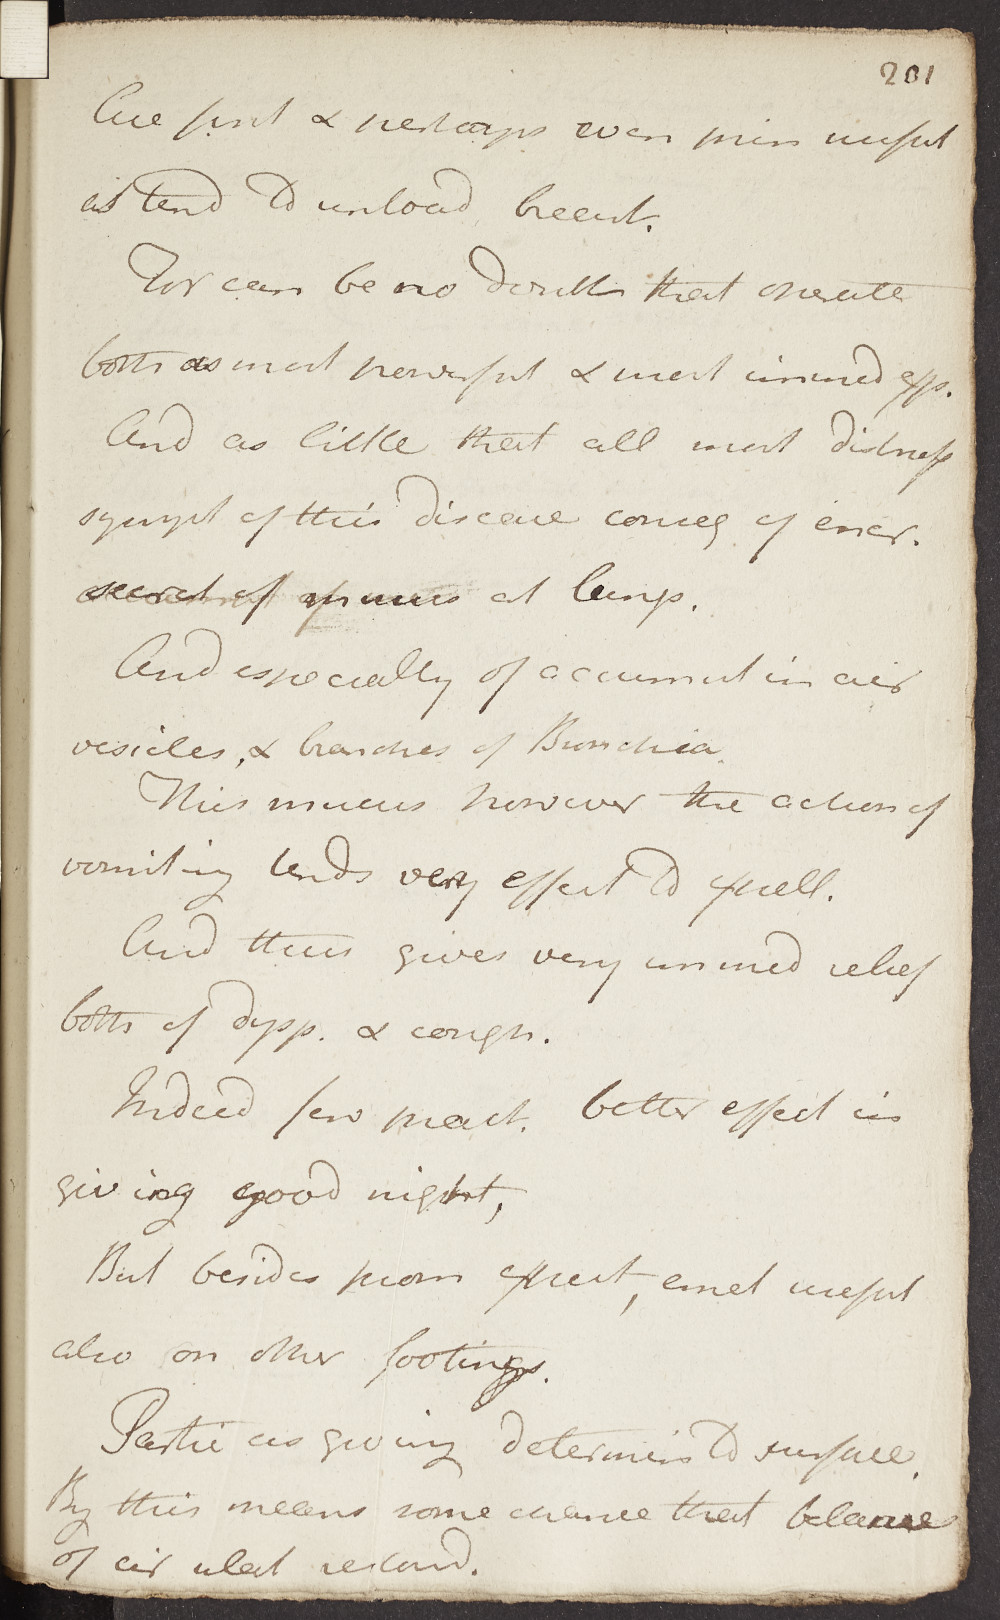 201
Are first & perhaps even prin useful
as tend to unload breast.
For can be no doubt that operate
both as most powerful & most immed exp.
And as little that all most distress
sympt of this disease comes of encr.
secret of mucus at lungs.
And especially of accumul in air
vesicles, & branches of Bronchia.
This mucus however the action of
vomiting tends very effect to expell.
And thus gives very immed relief
both of dysp. & cough.
Indeed few pract. better effect in
giving good night,
But besides prom expect, emet useful
also on other footings.
Partic as giving determin to surface.
By this means some chance that balance
of circulat restord.